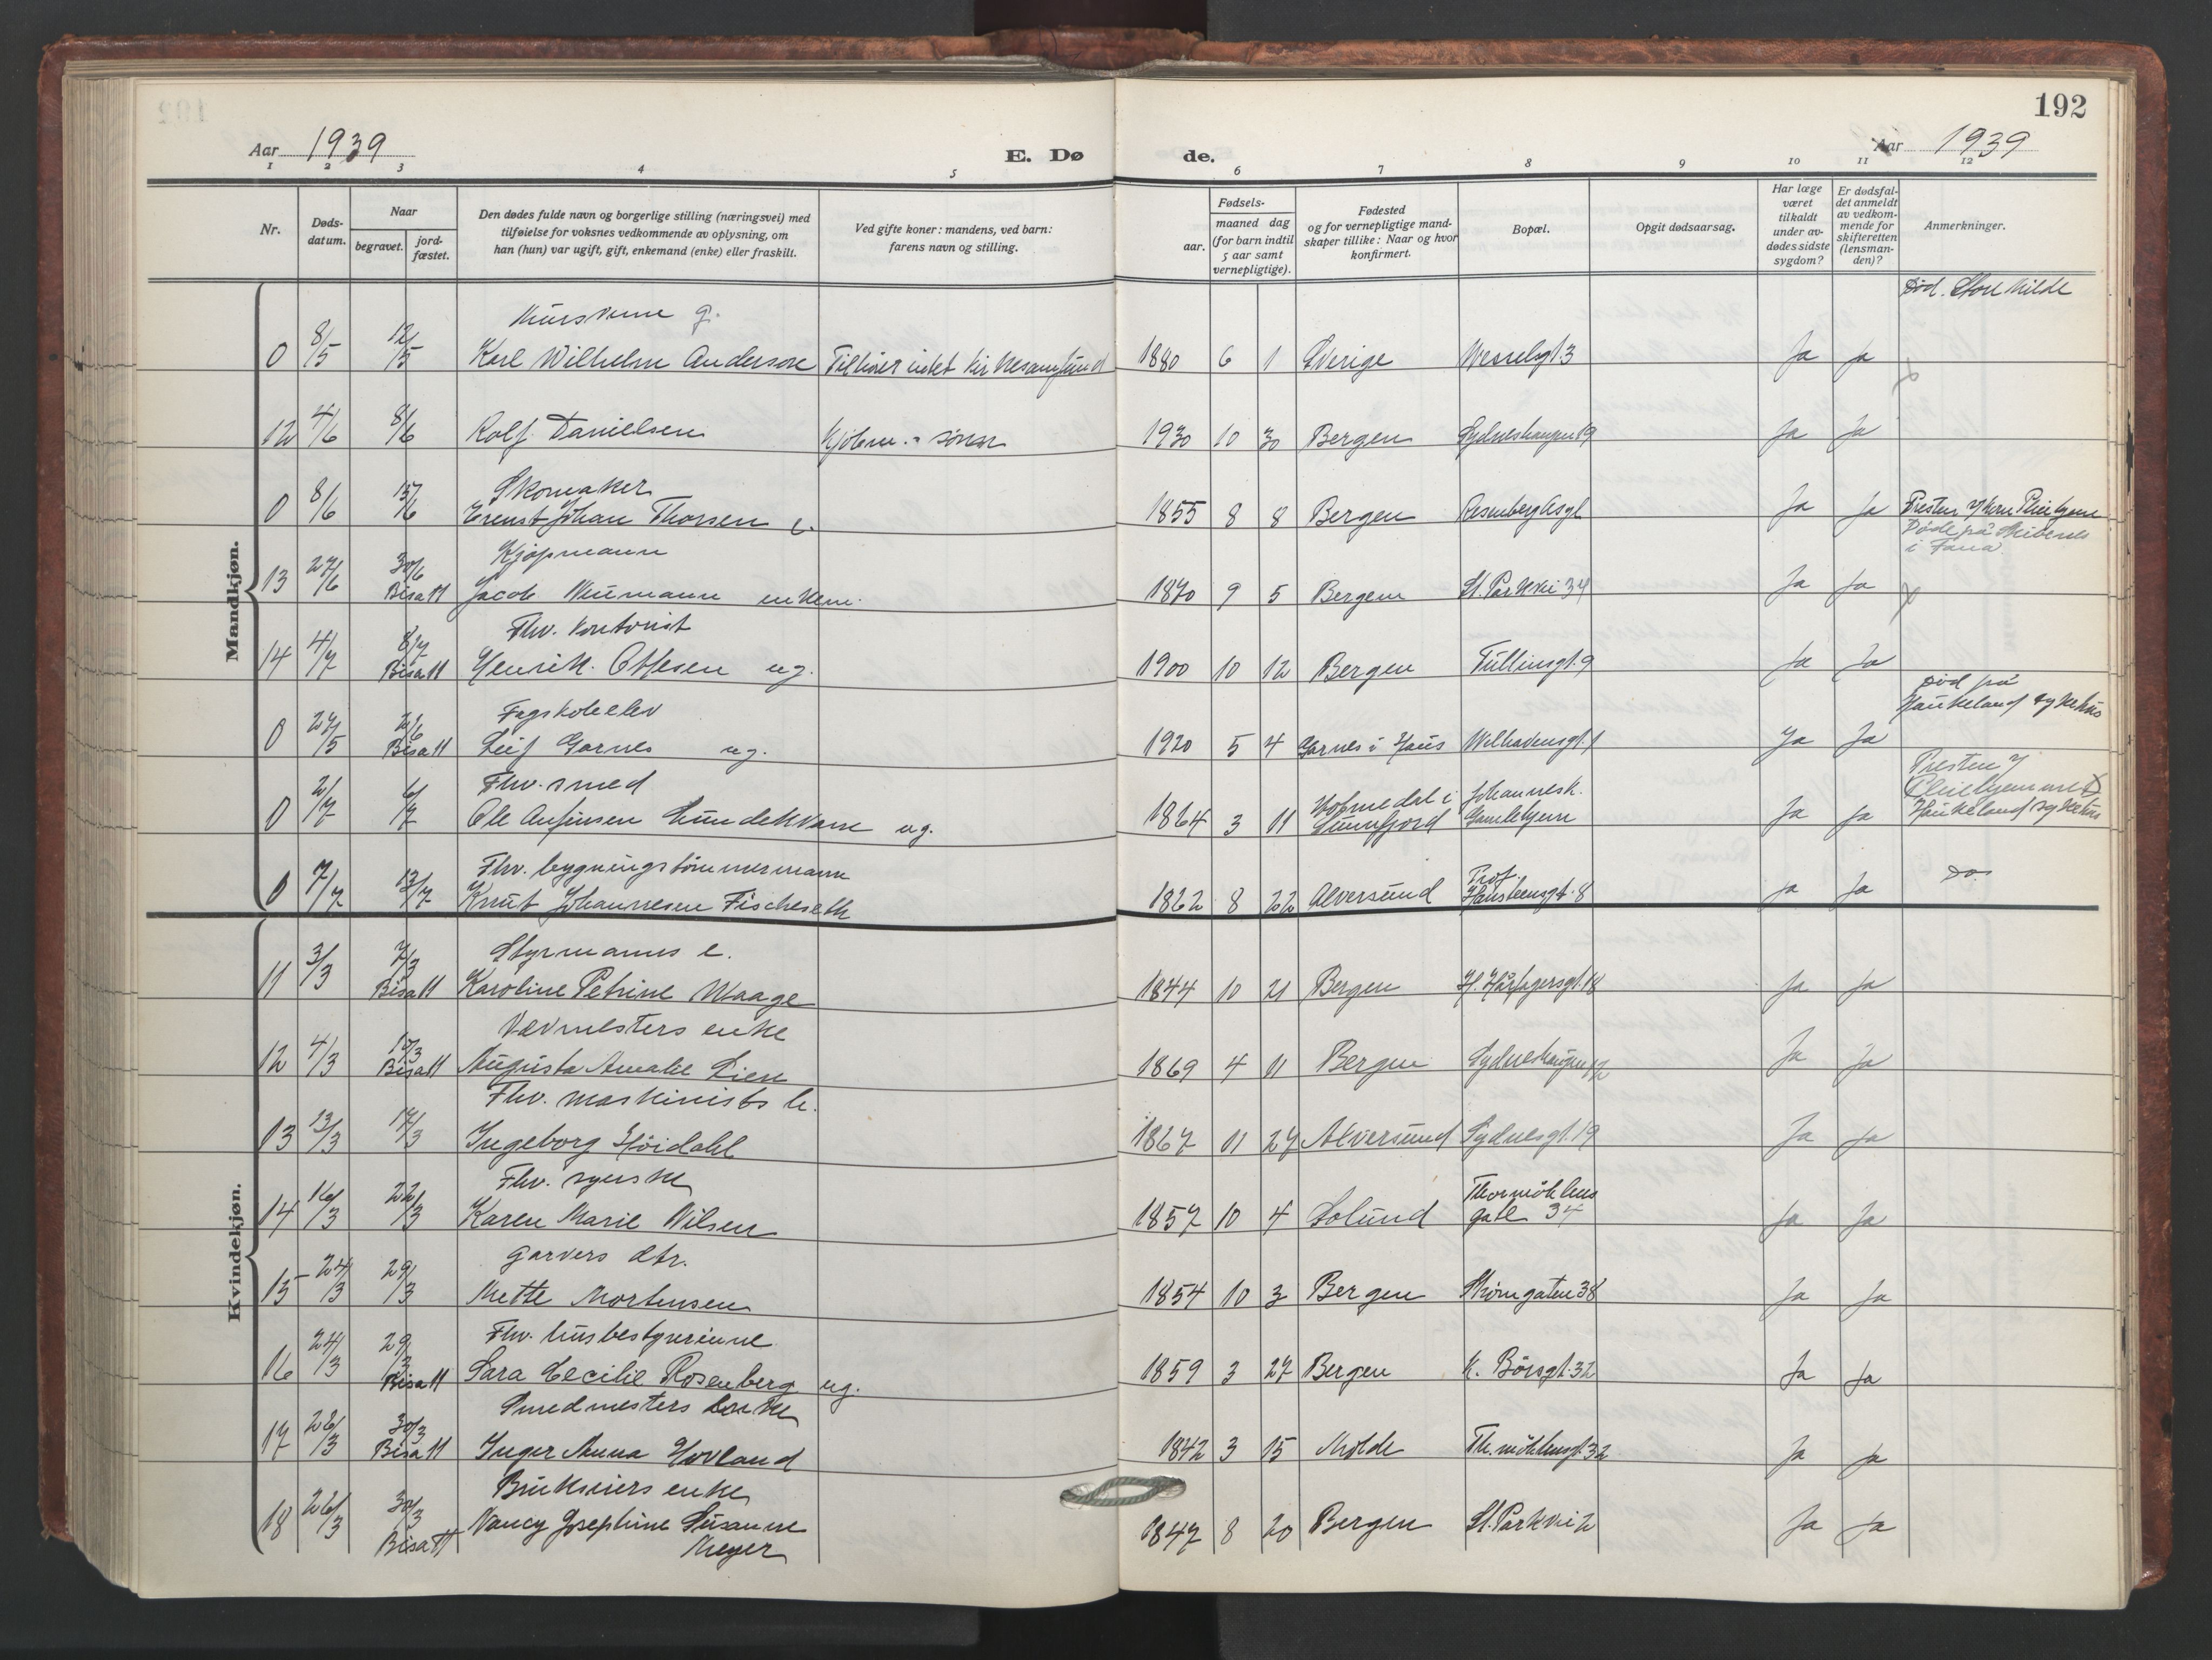 192
Aar 1939
E. Dø
de.
Aar 1939
1 2 3 4 5 6 7 8 9 10 11 12
Nr.
Døds-
datum.
Naar
begravet.
jord-
fæstet.
Den dødes fulde navn og borgerlige stilling (næringsvei) med
tilføielse for voksnes vedkommende av oplysning, om
han (hun) var ugift, gift, enkemand (enke) eller fraskilt.
Ved gifte koner: mandens, ved barn:
farens navn og stilling.
Fødsels-
aar.
maaned dag
(for barn indtil
5 aar samt
vernepligtige).
Fødested
og for vernepligtige mand-
skaper tillike: Naar og hvor
konfirmert.
Bopæl.
Opgit dødsaarsag.
Har læge
været
tilkaldt
under av-
dødes sidste
sygdom?
Er dødsfal-
det anmeldt
av vedkom-
mende for
skifteretten
(lensman-
den)?
Anmerkninger.
Mandkjøn.
Død. Store Milde
g.
0 8/5 12/5 Karl Wilhelm Anderson Tilhører intet kirkesamfund 1880 6 1 Sverige Wesselsgt. 3 Ja Ja
12 4/6 8/6 Rolf Danielsen Kjöbm. sönn 1930 10 30 Bergen Sydneshaugen 19 Ja Ja
Skomaker
0 8/6 13/6 Ernst Johan Thorsen e. 1855 8 8 Bergen Rosenbergsgt Ja Ja Presten
Døde på
i Fana
Kjøpmann
13 27/6 30/6 Bisatt Jacob Neumann enkem. 1870 9 5 Bergen St. Parkvei 34 Ja Ja
Fhv. kontorist
14 4/7 8/7 Bisatt Henrik Ottesen ug. 1900 10 12 Bergen Tullinsgt. 9 Ja Ja
Død på
Haukeland sykehus
Fagskoleelev
0 27/5 2/6 Bisatt Leif Garnes ug. 1920 5 4 Garnes i Haus Welhavensgt. 1 Ja Ja
Presten
Pleiehjemmet
Haukeland sykehus
Fhv. smed
0 2/7 6/7 Ole Anfinsen Lundekvam ug. 1864 3 11 Holmedal i Sunnfjord Johannesk. Gamlehjem Ja Ja
Fhv. bygningstömmermann
0 7/7 13/7 Knut Johannesen Fischeseth 1862 8 22 Alversund Prof. Hansteensgt. 8 Ja Ja Do.
Kvindekjøn.
Styrmanns e.
11 3/3 7/3 Bisatt Karoline Petrine Waage 1844 10 21 Bergen H. Hårfagersgt. 18 Ja Ja
Vevmesters enke
12 4/3 10/3 Bisatt Augusta Amalie Lien 1869 4 11 Bergen Sydneshaugen 12 Ja Ja
Fhv. maskinists h.
13 13/3 17/3 Ingeborg Høidahl 1867 11 27 Alversund Sydnesgt. 19 Ja Ja
Fhv. syerske
14 16/3 22/3 Karen Marie Nilsen 1857 10 4 Solund Thormöhlens gate 34 Ja Ja
Garvers dtr.
15 24/3 29/3 Mette Mortensen 1854 10 3 Bergen Strømgaten 38 Ja Ja
Fhv. husbestyrerinne
16 24/3 29/3 Bisatt Sara Cecilie Rosenberg ug. 1859 3 27 Bergen K. Börsgt. 32 Ja Ja
Smedmesters enke
17 26/3 30/3 Bisatt Inger Anna Hovland 1842 3 15 Molde Th. möhlensgt. 32 Ja Ja
Brukseiers enke
18 26/3 30/3 Bisatt Nancy Josephine Susanne 1847 8 20 Bergen St. Parkvei 2 Ja Ja
Meyer